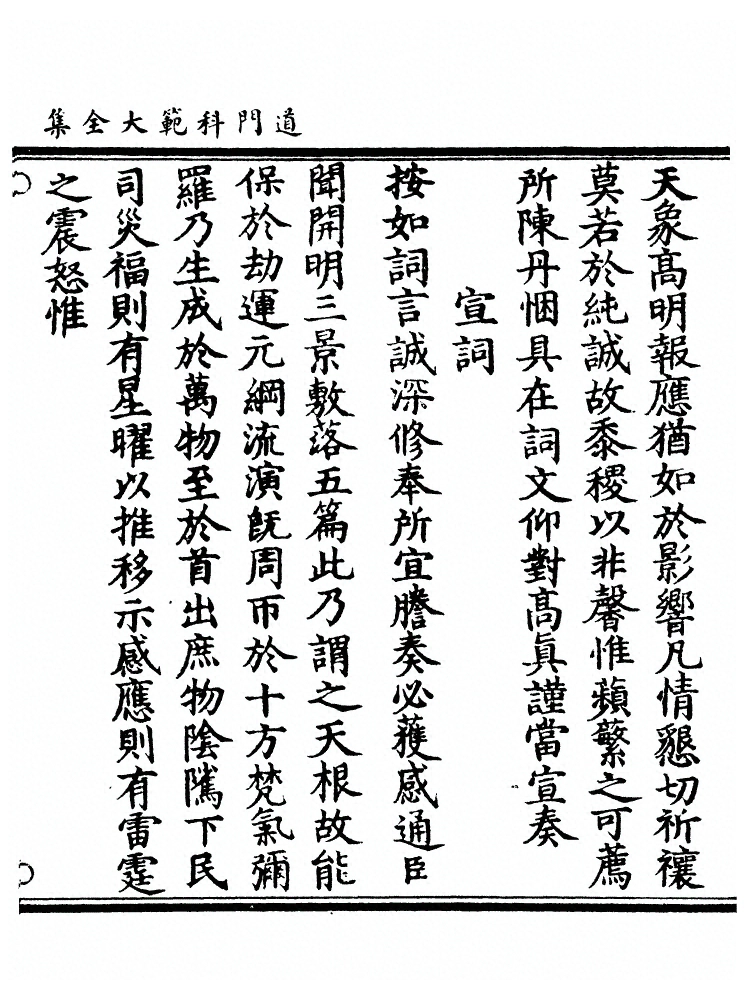 道門科範大全集
天象高明報應猶如於影響凡情懇切祈禳
莫若於純誠故黍稷以非馨惟蘋蘩之可薦
所陳丹悃具在詞文仰對高眞謹當宣奏
宣詞
按如詞言誠深修奉所宜謄奏必獲感通臣
聞開明三景敷落五篇此乃謂之天根故能
保於劫運元綱流演旣周帀於十方梵氣彌
羅乃生成於萬物至於首出庶物陰隲下民
司災福則有星曜以推移示感應則有雷霆
之震怒惟